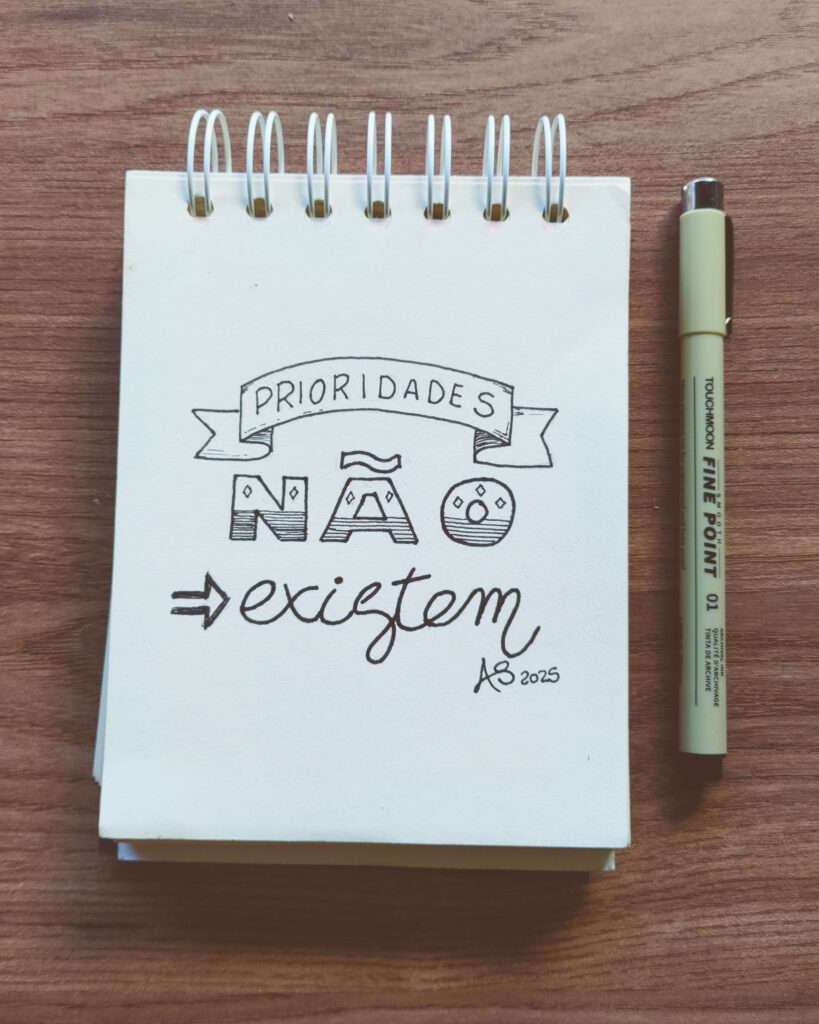 PRIORIDADES
NÃO
⇒ existem
AS 2025
TOUCHMOON
SMOOTH
FINE POINT
01
ARCHIVAL INK
QUALITÉ D'ARCHIVAGE
TINTA DE ARCHIVE